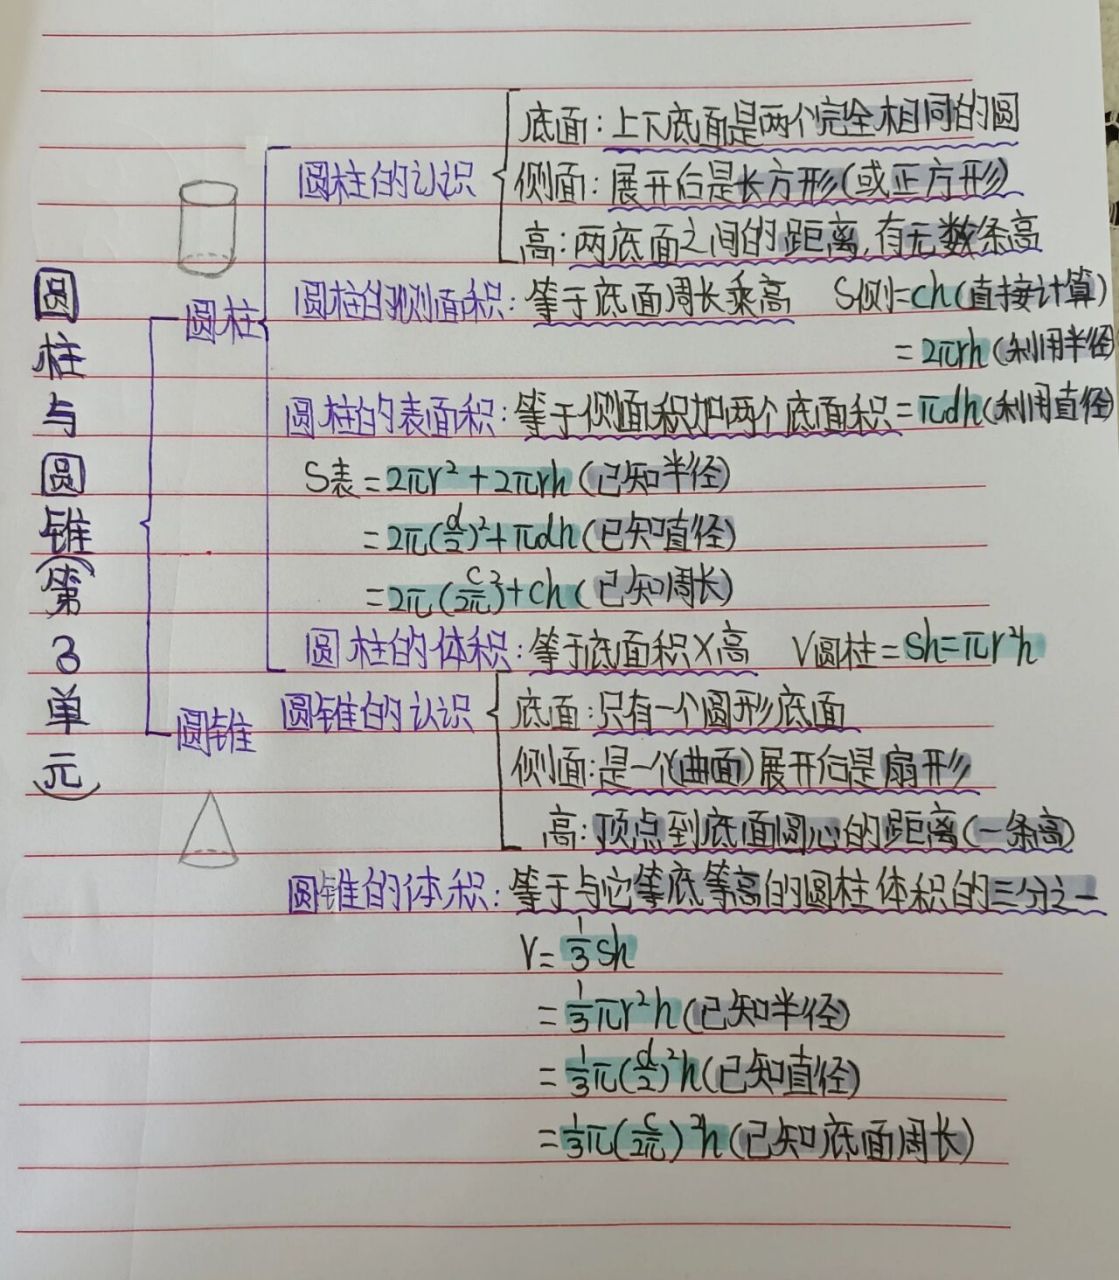 圆柱与圆锥(第3单元)
底面:上下底面是两个完全相同的圆
圆柱的认识
侧面:展开后是长方形(或正方形)
高:两底面之间的距离,有无数条高
圆柱
圆柱的侧面积:等于底面周长乘高 S侧=ch(直接计算)
=2πrh(利用半径
圆柱的表面积:等于侧面积加两个底面积=πdh(利用直径)
S表=2πr²+2πrh(已知半径)
=2π(d/2)²+πdh(已知直径)
=2π(C/2π)²+ch(已知周长)
圆柱的体积:等于底面积×高 V圆柱=Sh=πr²h
圆锥
圆锥的认识
底面:只有一个圆形底面
侧面:是一个(曲面)展开后是扇形
高:顶点到底面圆心的距离(一条高)
圆锥的体积:等于与它等底等高的圆柱体积的三分之一
V=1/3Sh
=1/3πr²h(已知半径)
=1/3π(d/2)²h(已知直径)
=1/3π(C/2π)²h(已知底面周长)